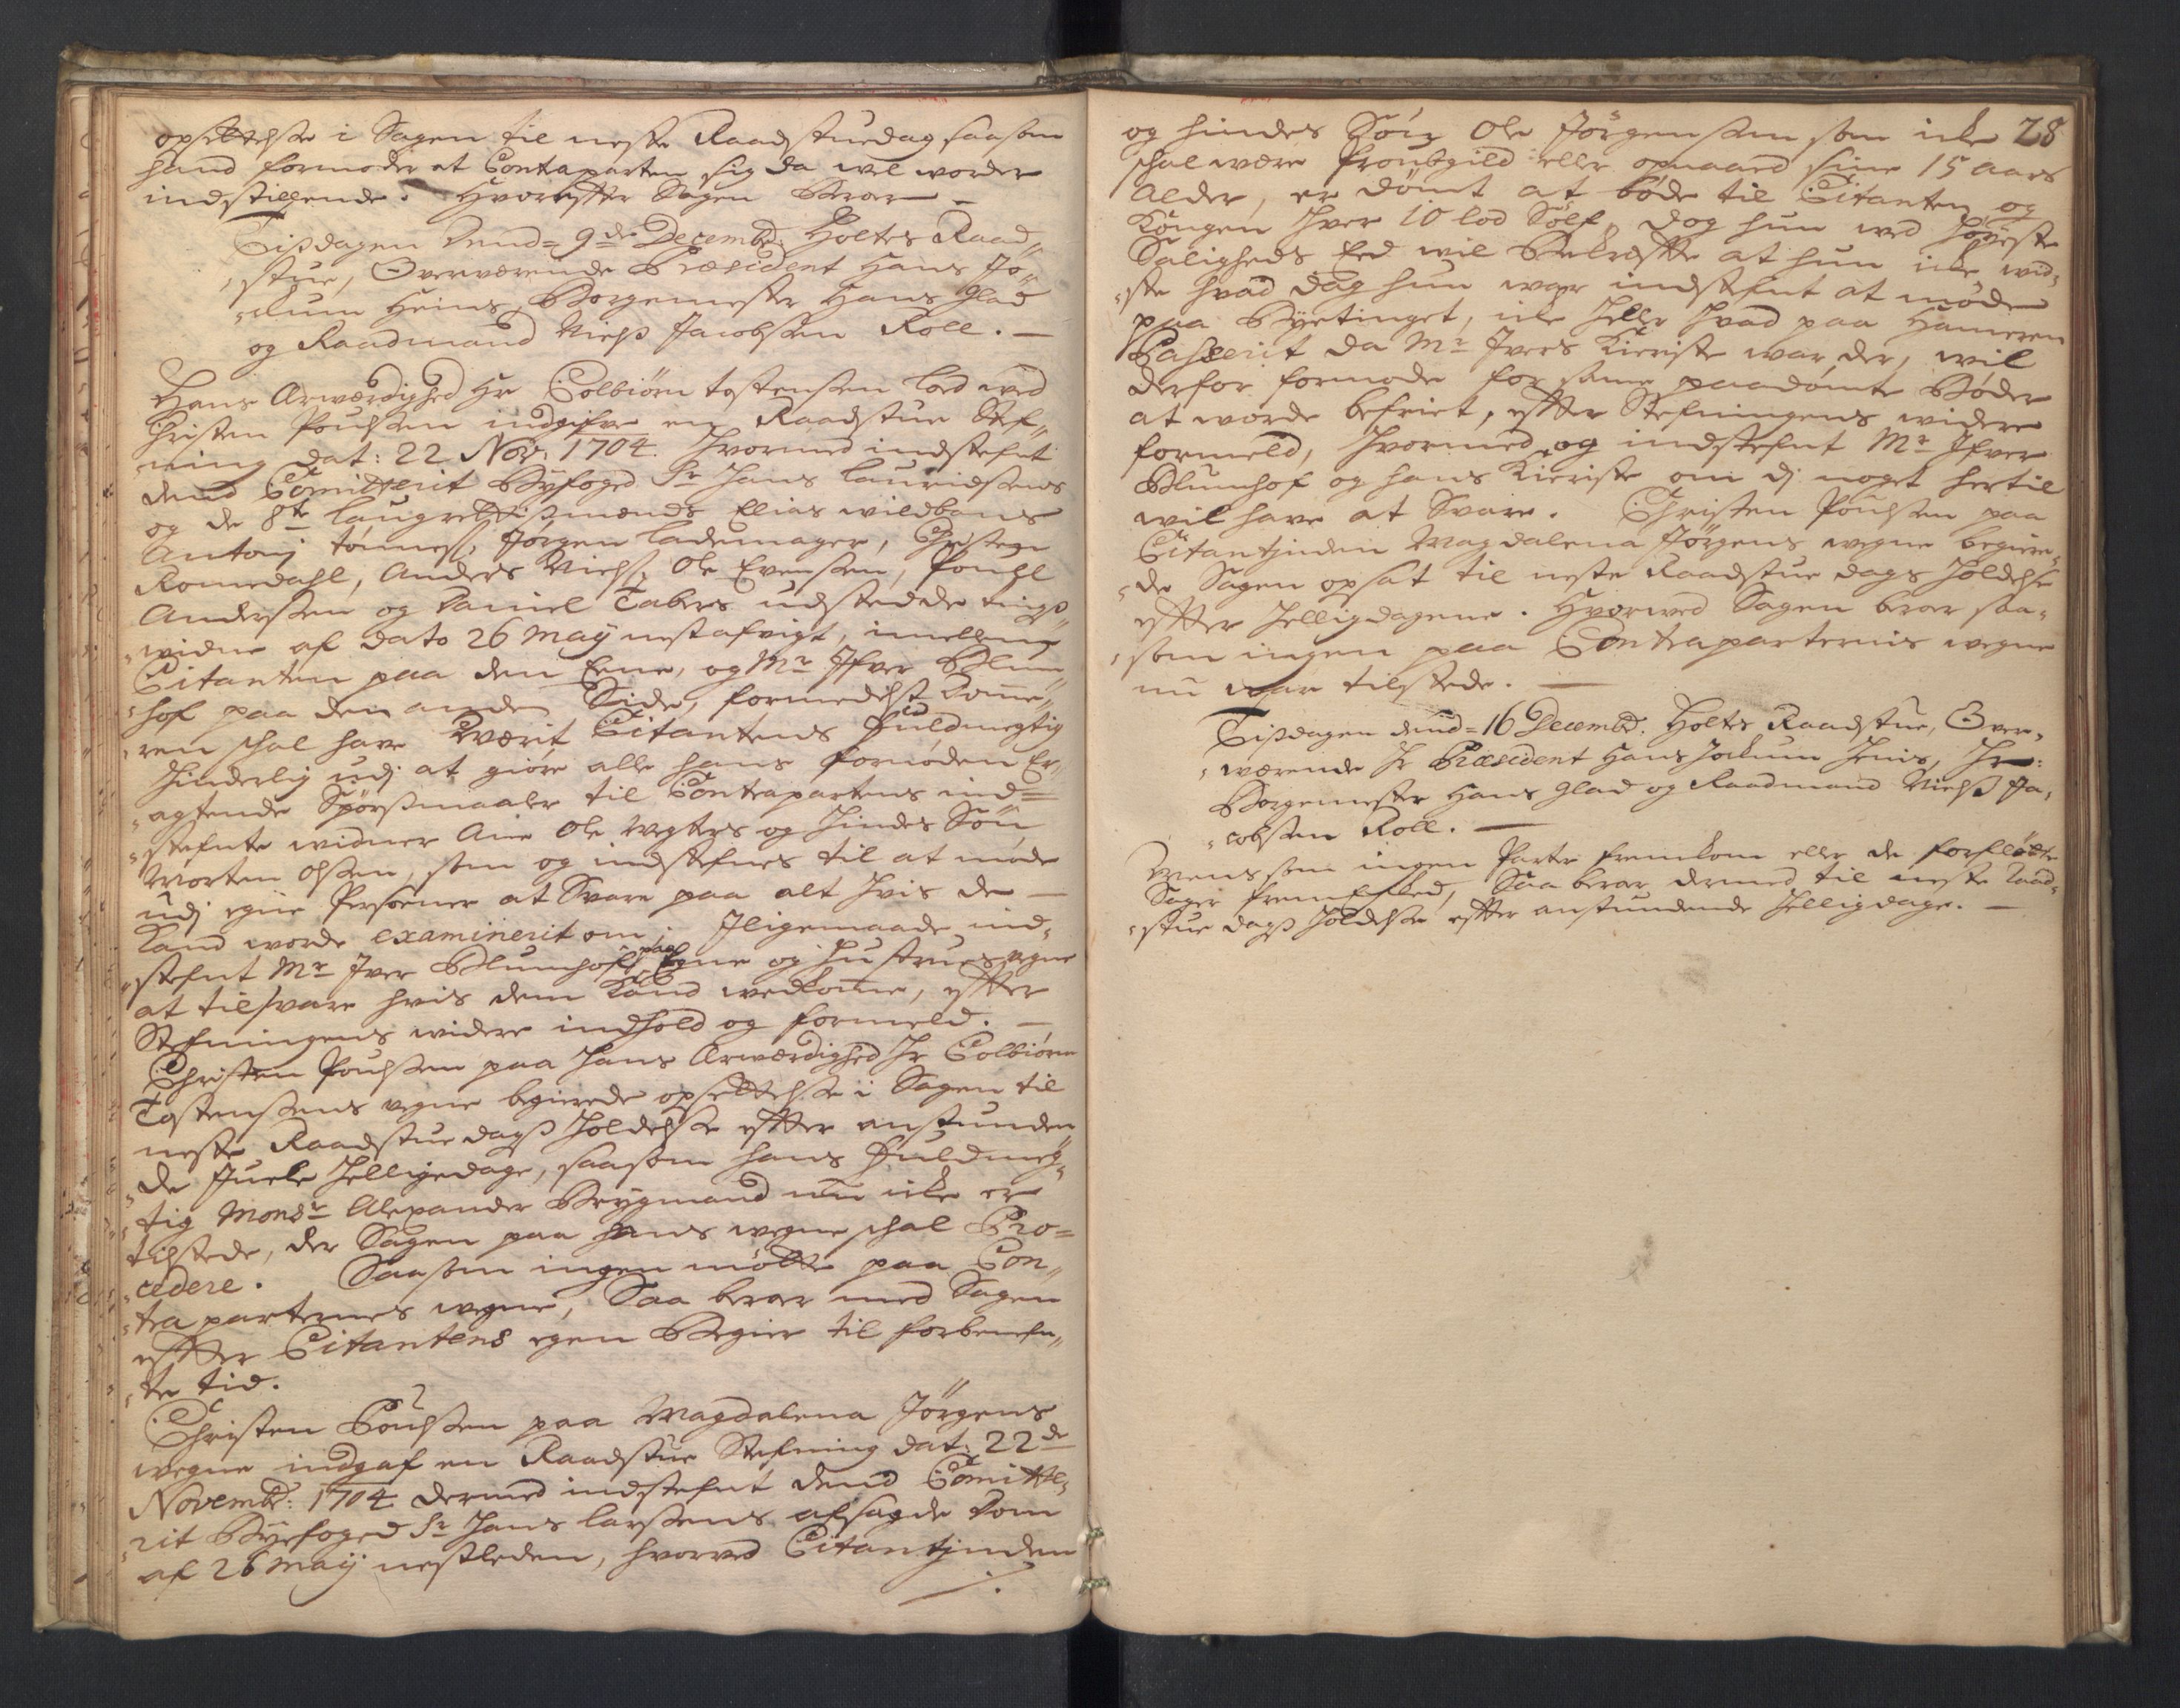 opsettelße i Sagen til neste Raadstuedag saasom
hand formoder at Contraparten sig da wel worder
indstillende. Hvorefter Sagen Beror –
Tisdagen dend= 9de Decembr. Holtes Raad„
„stue, Overværende Præsident Hans Jo„
„chum Heins, Borgemester Hans Glad
og Raadmand Nielß Jacobßen Roll. —
Hans Ærwærdighed Hr Tolbiörn tostensen lod wed
Christen Poulßen indgifve en Raadstue Stef„
„ning dat: 22 Nov: 1704. Hvormed indstefnt
dend Comitterit Byfoged Sr Hans lauridßens
og de 8te laugrettismænds Elias wildbans
Antonj tönnesß: Jörgen lademager, Christen
Romedahl, Anders Nielß: Ole Evenßen, Pouhl
Anderßen og Daniel Tabers udstedde tings„
„widne af dato 26 Maij nest afvigt, imellem
Citanten paa den Eene, og Mr Ifver Blum„
„hof paa den anden Side, formedelst Dom̄e„
„ren schal have wærit Citantens Fuldmegtig
Hinderlig udj at giöre alle hans fornöden Er„
„agtende Spörßmaaler til Contrapartens ind=
„stefnte widner Ane Ole Wegters og Hindes Sön
Morten Olßen, som og indstefnes til at möde
udj egne Personer at Svare paa alt hvis de —
Kand worde examinerit om; Iligemaade ind„
„stefnt Mr Iver Blumhof, paa Egne og Hustrues wegne
at tilsvare hvis dem Kand wedkom̄e, efter
Stefningens widere indhold og formeld. —
Christen Poulßen paa Hans Ærwærdighed Hr Tolbiörn
Tostensens wegne begierede opsettelße i Sagen til
neste Raadstue dags Holdelße efter anstunden„
„de Juele Helligedage, saasom hans Fuldmeg„
„tig Monsr Alexander Brygmand nu icke er
tilstede, der Sagen paa hans wegne schal Pro=
„cedere. Saasom ingen mötte paa Con„
„traparternes wegne, Saa beror med Sagen
efter Citantens egen Begier til forbenefn„
„te tid.
Christen Poulßen paa Magdalena Jörgens
wegne indgaf en Raadstue Stefning dat: 22de
Novembr: 1704 dermed indstefnt dend Comitte„
„rit Byefoged Sr Hans larßens afsagde dom
af 26 Maij nestleden, hvorved Citantinden
/.
28
og hindes Sön Ole Jörgenßen som icke
schal være fronbgild eller opnaaed sine 15 aars
Alder, er dömt at böde til Citanten og
Kongen hver 10 lod Sölf, dog hun wed Höyeste
Saligheds Eed wil Bekrefte at hun icke wid„
„ste hvad dag hun war indstefnt at möde
paa Byetinget, icke heller hvad paa Hameren
Passerit da Mr Ivers Kieriste war der, wil
derfor formode for samme paadömte Böder
at worde befriet, efter Stefningens widere
formeld, Hvormed og indstefnt Mr Ifver
Blumhof og hans Kieriste om dj noget hertil
wil have at Svare. Christen Poulßen paa
Citantinden Magdalena Jörgens wegne begiere„
„de Sagen opsat til neste Raadstue dags Holdelße
efter Helligdagene. Hvorved Sagen beror saa„
„som ingen paa Contraparternis wegne
nu war tilstede. —
Tisdagen dend= 16 Decembr. Holtes Raadstue, Over„
„wærende Hr Præsident Hans Jochum Heins, Hr:
Borgemester Hans Glad og Raadmand Nielß Ja„
„cobßen Roll. —
Mens som ingen Parter fremkom eller de forfløtte
Sager fremEsked, Saa beror dermed til neste Raad„
„stue dags Holdelße efter anstundende Helligdage. —